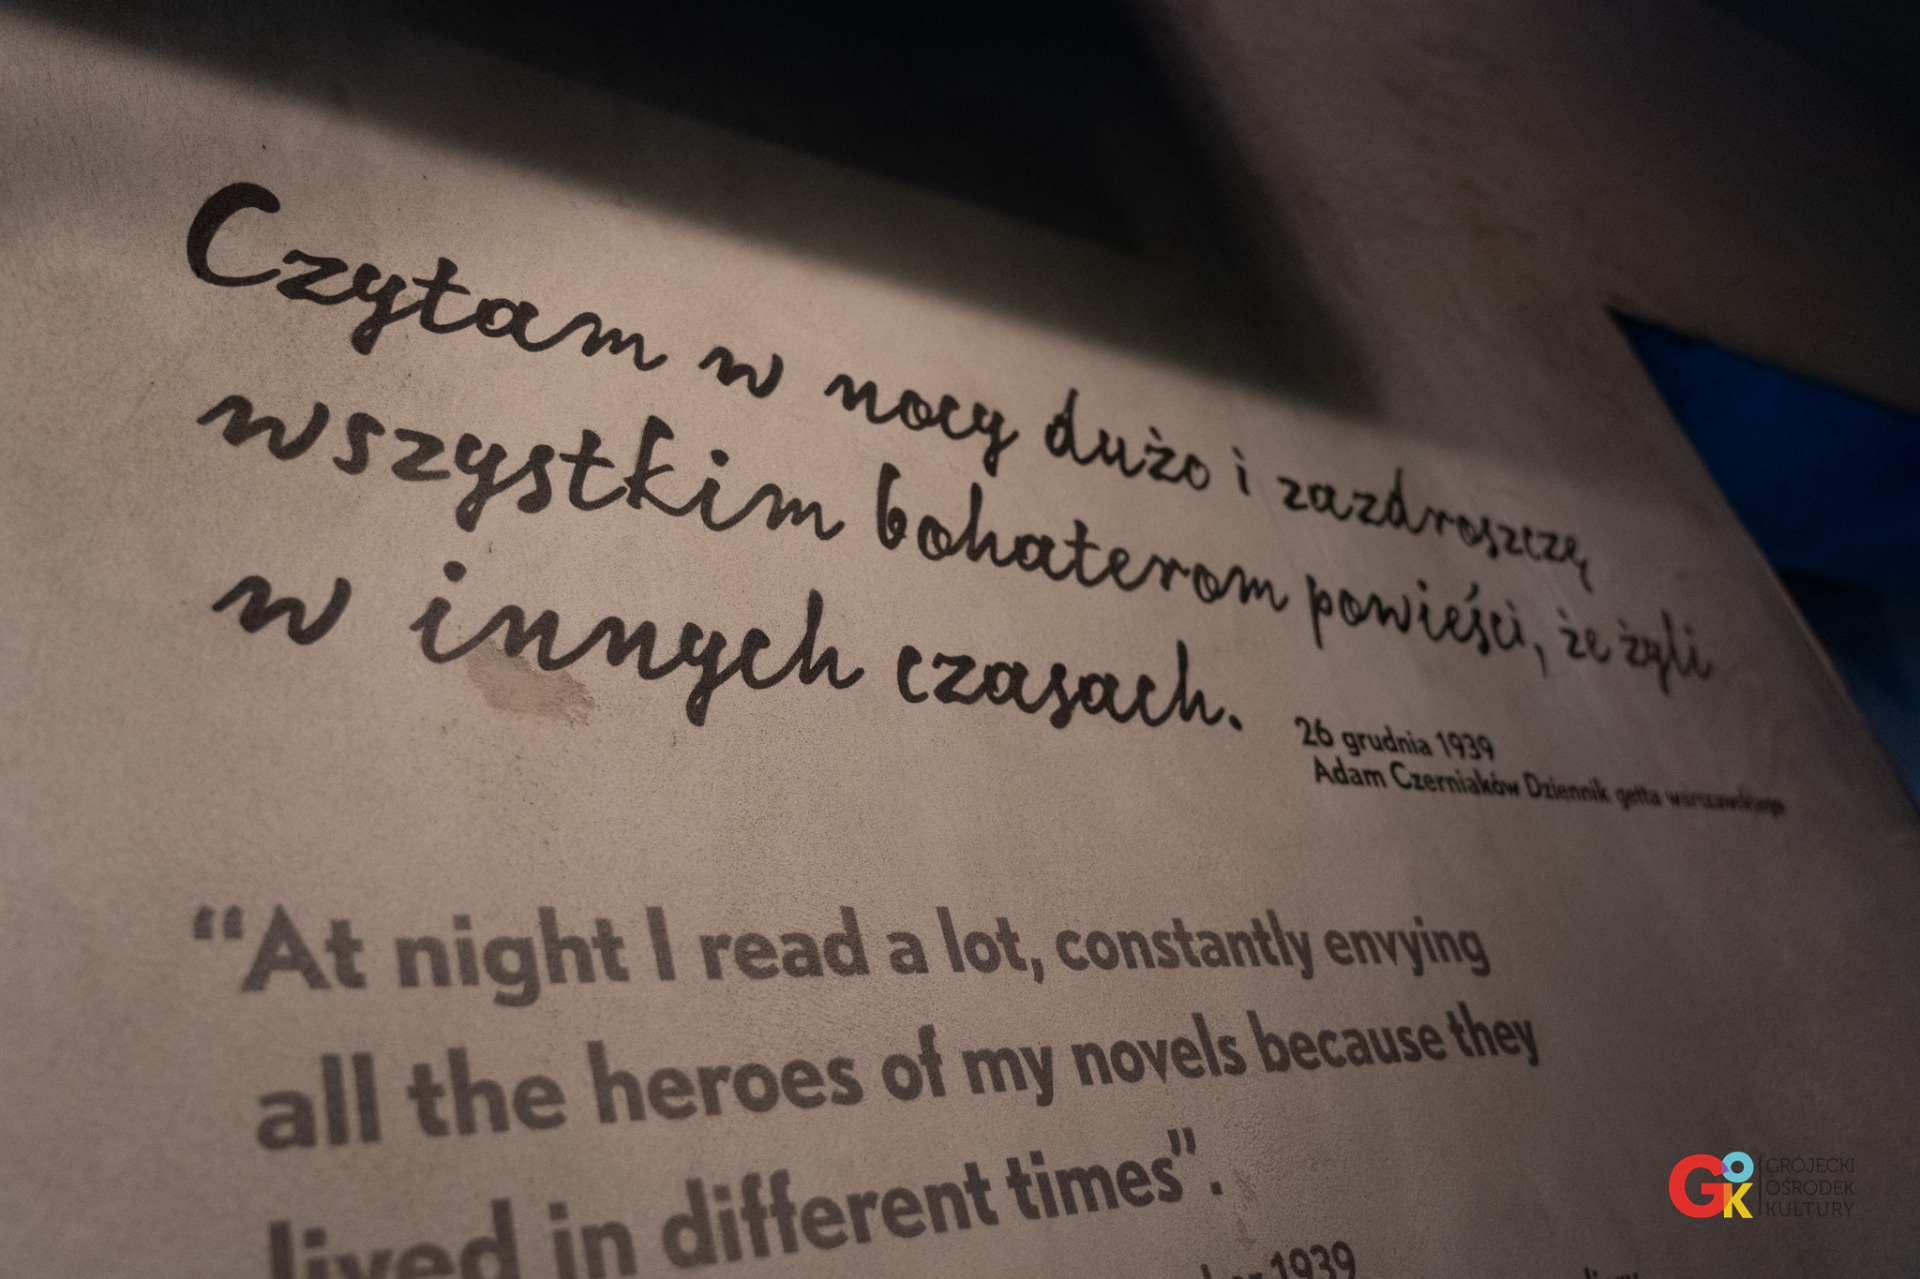 Czytam w nocy dużo i zazdroszczę
wszystkim bohaterom powieści, że żyli
w innych czasach.
26 grudnia 1939
Adam Czerniaków Dziennik getta warszawskiego
“At night I read a lot, constantly envying
all the heroes of my novels because they
lived in different times”.
1939
GOK
GRÓJECKI
OŚRODEK
KULTURY